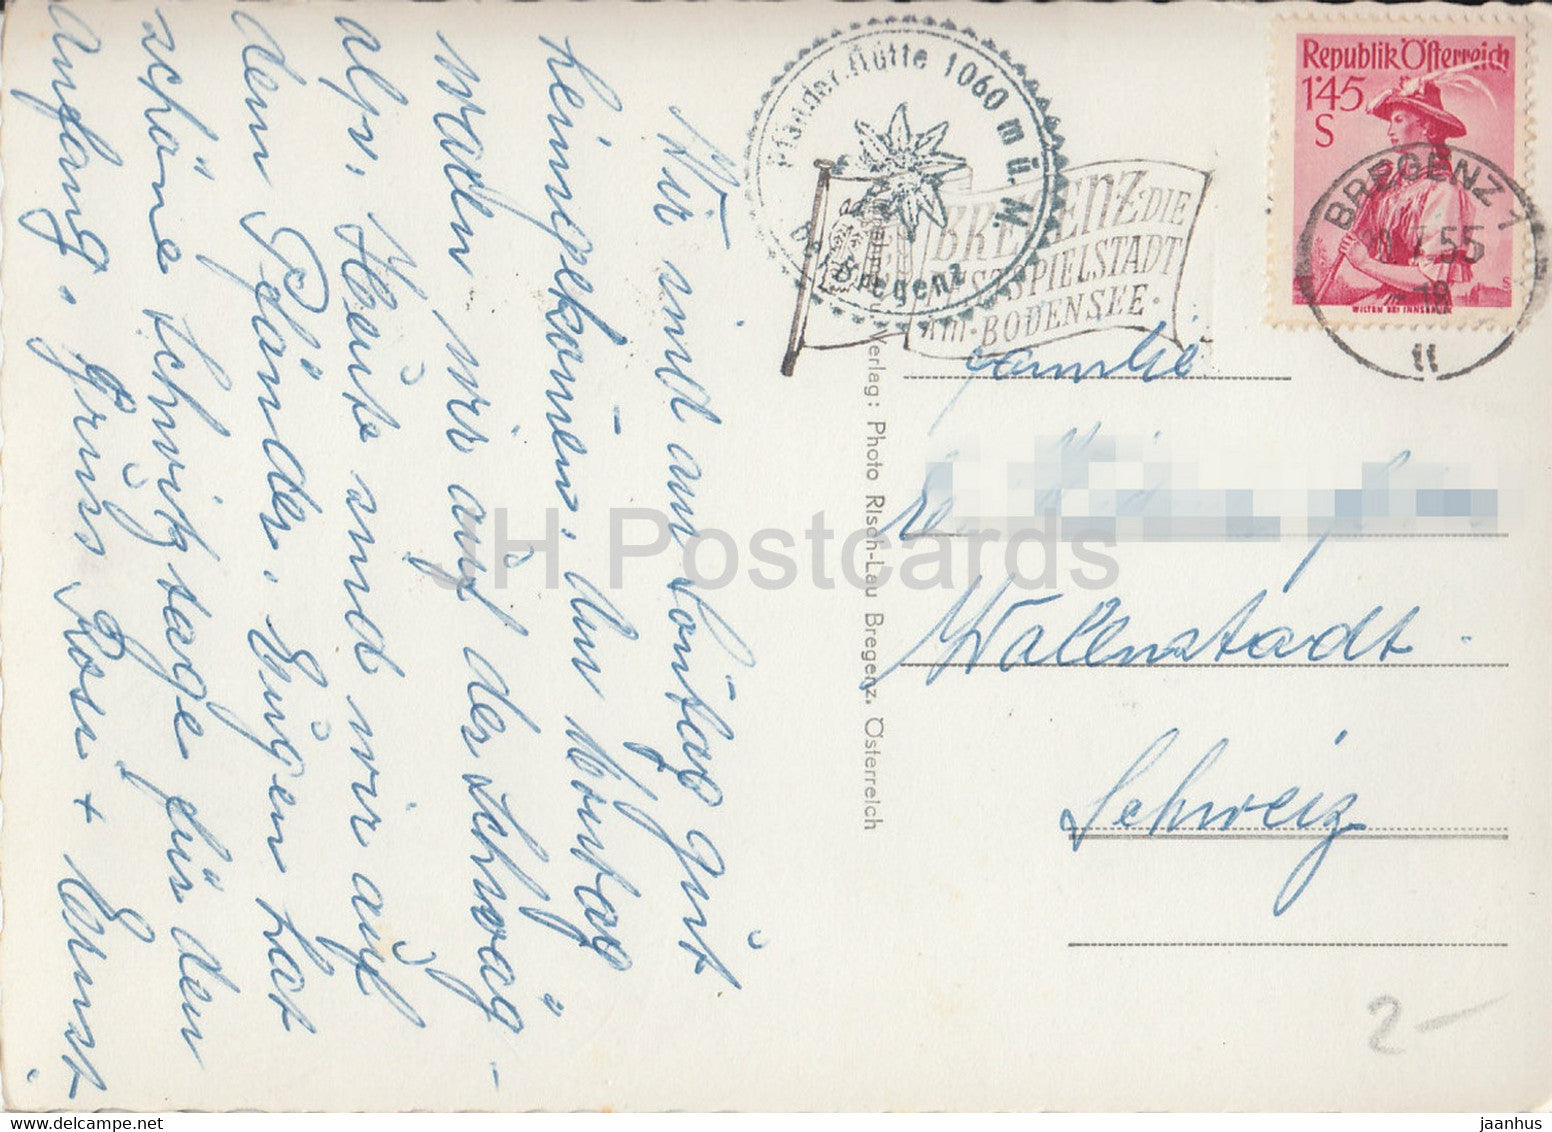 Wir sind am Sontag gut
heimgekom̄en. Am Montag
waren wir auf der Schwäg-
alp. Heute sind wir auf
dem Pfänder. Eugen hat
schöne Schwitztage für den
Anfang. Gruss Rosi + Ernst.
Pfänder.Hütte 1060 m ü. M.
b. Bregenz
BREGENZ·DIE
FESTSPIELSTADT
AM·BODENSEE·
Republik Österreich
1'45
S
WILTEN BEI INNSBRUCK
BREGENZ 1
7.55
Verlag: Photo Risch-Lau Bregenz, Österreich
Familie
Wallenstadt.
Schweiz
2-
JH Postcards
www.delcampe.net
jaanhus